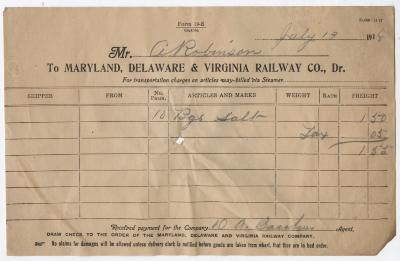 Form 19-B
July 19 1918
Mr. A Robinson
To MARYLAND, DELAWARE & VIRGINIA RAILWAY CO., Dr.
For transportation charges on articles way-billed via Steamer
SHIPPER FROM No. Pkgs. ARTICLES AND MARKS WEIGHT RATE FREIGHT
10 Bgs Salt 1.50
Tax .05
1.55
Received payment for the Company, Agent.
DRAW CHECK TO THE ORDER OF THE MARYLAND, DELAWARE AND VIRGINIA RAILWAY COMPANY.
No claims for damages will be allowed unless delivery clerk is notified before goods are taken from wharf, that they are in bad order.